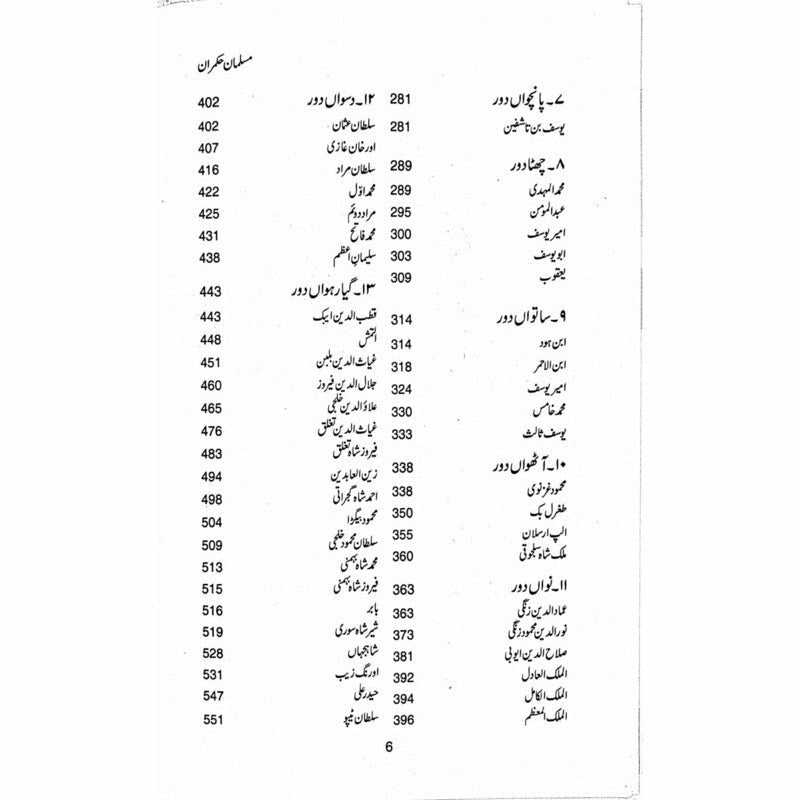 مسلمان حکمران
۷۔ پانچواں دور 281
یوسف بن تاشفین 281
۸۔ چھٹا دور 289
محمد المہدی 289
عبدالمومن 295
امیر یوسف 300
ابو یوسف 303
یعقوب 309
۹۔ ساتواں دور 314
ابن ہود 314
ابن الاحمر 318
امیر یوسف 324
محمد خامس 330
یوسف ثالث 333
۱۰۔ آٹھواں دور 338
محمود غزنوی 338
طغرل بک 350
الپ ارسلان 355
ملک شاہ سلجوقی 360
۱۱۔ نواں دور 363
عماد الدین زنگی 363
نور الدین محمود زنگی 373
صلاح الدین ایوبی 381
الملک العادل 392
الملک الکامل 394
الملک المعظم 396
۱۲۔ دسواں دور 402
سلطان عثمان 402
اور خان غازی 407
سلطان مراد 416
محمد اوّل 422
مراد دوئم 425
محمد فاتح 431
سلیمان اعظم 438
۱۳۔ گیارہواں دور 443
قطب الدین ایبک 443
التمش 448
غیاث الدین بلبن 451
جلال الدین فیروز 460
علاؤ الدین خلجی 465
غیاث الدین تغلق 476
فیروز شاہ تغلق 483
زین العابدین 494
احمد شاہ گجراتی 498
محمود بیگڑا 504
سلطان محمود خلجی 509
محمد شاہ بہمنی 513
فیروز شاہ بہمنی 515
بابر 516
شیر شاہ سوری 519
شاہجہاں 528
اورنگ زیب 531
حیدر علی 547
سلطان ٹیپو 551
6